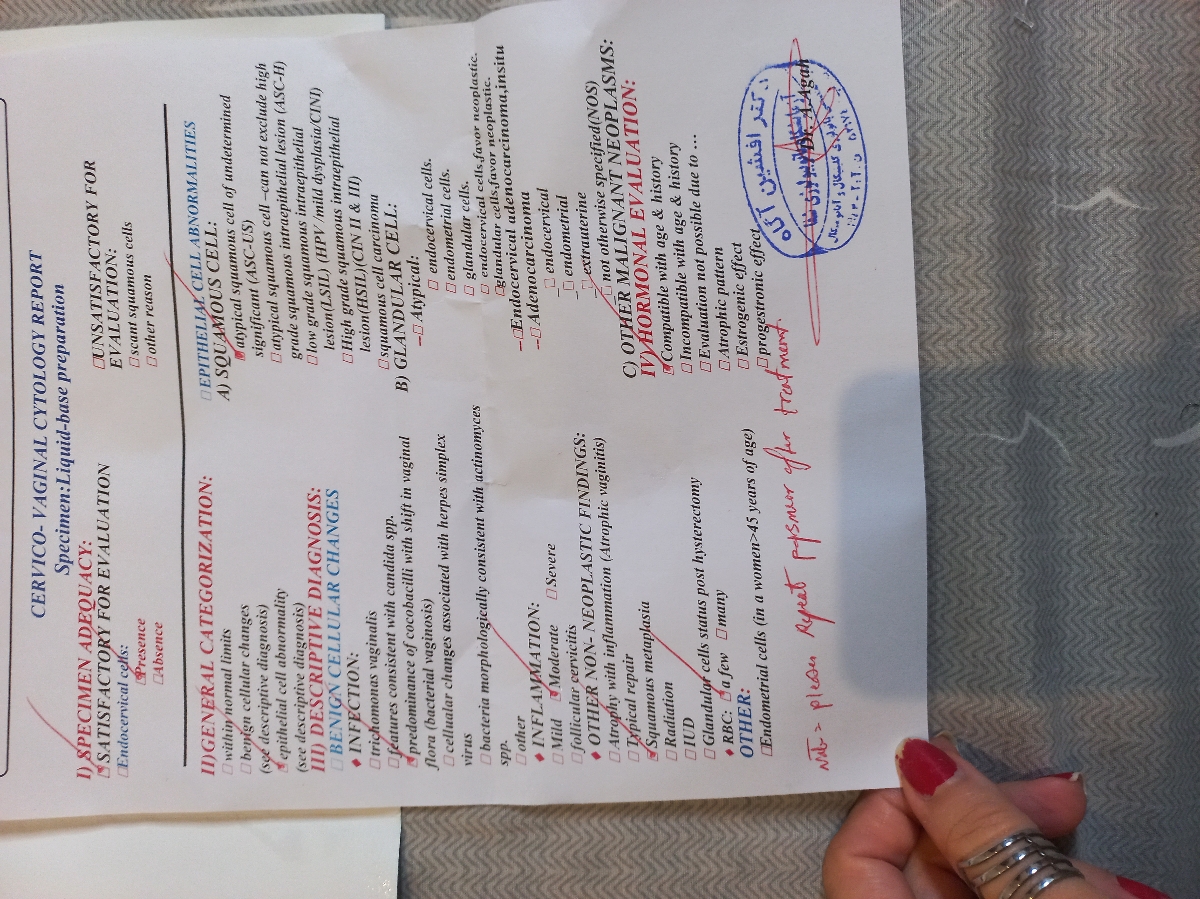 CERVICO-VAGINAL CYTOLOGY REPORT
Specimen:Liquid-base preparation
I) SPECIMEN ADEQUACY:
□SATISFACTORY FOR EVALUATION
□Endocervical cells:
□Presence
□Absence
□UNSATISFACTORY FOR
EVALUATION:
□scant squamous cells
□other reason
II)GENERAL CATEGORIZATION:
□within normal limits
□benign cellular changes
(see descriptive diagnosis)
□epithelial cell abnormality
(see descriptive diagnosis)
III) DESCRIPTIVE DIAGNOSIS:
□BENIGN CELLULAR CHANGES
♦ INFECTION:
□trichomonas vaginalis
□features consistent with candida spp.
□predominance of cocobacilli with shift in vaginal
flora (bacterial vaginosis)
□cellualar changes associated with herpes simplex
virus
□bacteria morphologically consistent with actinomyces
spp.
□other
♦ INFLAMMATION:
□Mild □Moderate □Severe
□follicular cervicitis
♦ OTHER NON- NEOPLASTIC FINDINGS:
□Atrophy with inflammation (Atrophic vaginitis)
□Typical repair
□Squamous metaplasia
□Radiation
□IUD
□Glandular cells status post hysterectomy
♦ RBC: □a few □many
OTHER:
□Endometrial cells (in a women>45 years of age)
□EPITHELIAL CELL ABNORMALITIES
A) SQUAMOUS CELL:
□atypical squamous cell of undetermined
significant (ASC-US)
□atypical squamous cell –can not exclude high
grade squamous intraepithelial lesion (ASC-H)
□low grade squamous intraepithelial
lesion(LSIL) (HPV /mild dysplasia/CINI)
□High grade squamous intraepithelial
lesion(HSIL)(CIN II & III)
□squamous cell carcinoma
B) GLANDULAR CELL:
–□Atypical:
□endocervical cells.
□endometrial cells.
□glandular cells.
□endocervical cells,favor neoplastic.
□glandular cells,favor neoplastic.
–□Endocervical adenocarcinoma,insitu
–□Adenocarcinoma
□endocervical
□endometrial
□extrauterine
□not otherwise specified(NOS)
C) OTHER MALIGNANT NEOPLASMS:
IV) HORMONAL EVALUATION:
□Compatible with age & history
□Incompatible with age & history
□Evaluation not possible due to ...
□Atrophic pattern
□Estrogenic effect
□progestronic effect
Dr. A.Agah
دکتر افشین آگاه
Repeat after treatment.